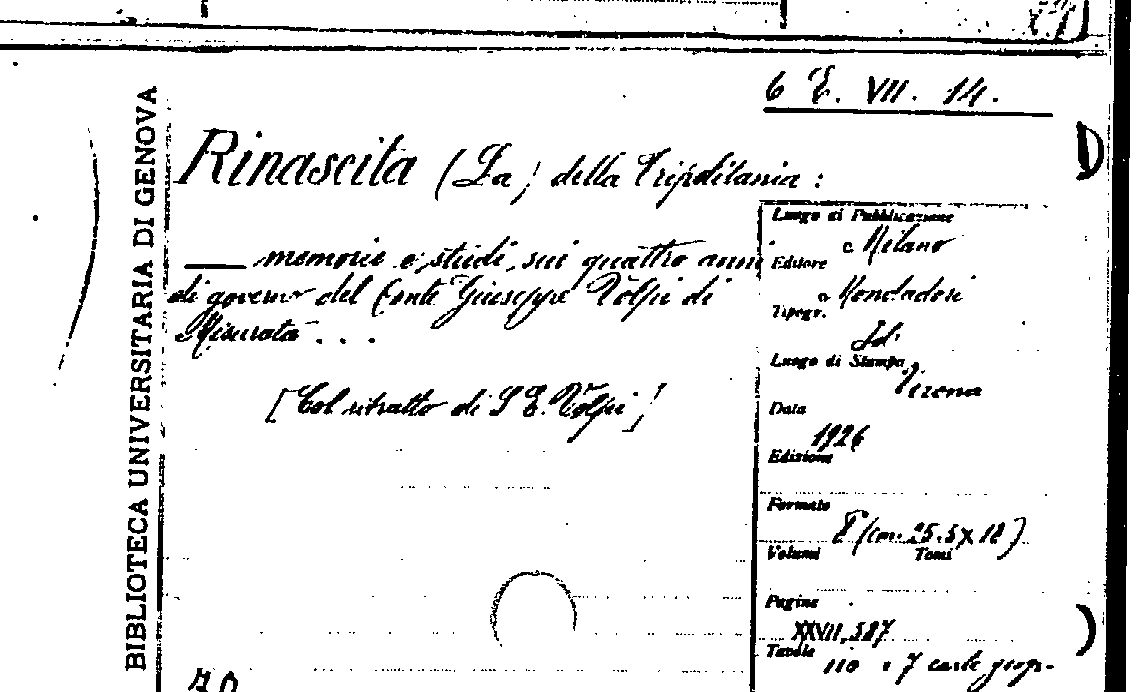 6 E. VII. 14.
BIBLIOTECA UNIVERSITARIA DI GENOVA
Rinascita (La) della Tripolitania :
— memorie e studi sui quattro anni
di governo del Conte Giuseppe Volpi di
Misurata . . .
[Col ritratto di S. E. Volpi]
Luogo di Pubblicazione
Milano
Editore
Mondadori
Tipogr.
Id.
Luogo di Stampa
Verona
Data
1926
Edizione
Formato
8° (cm. 25.5 x 18)
Volumi Tomi
Pagine
XXVII, 587
Tavole
110 e 7 carte geogr.